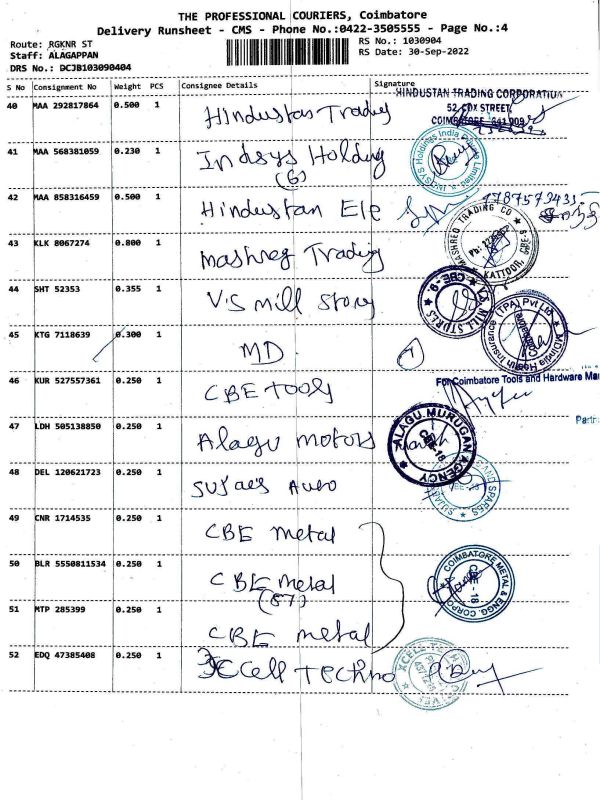 THE PROFESSIONAL COURIERS, Coimbatore
Delivery Runsheet - CMS - Phone No.:0422-3505555 - Page No.:4
Route: RGKNR ST
RS No.: 1030904
Staff: ALAGAPPAN
RS Date: 30-Sep-2022
DRS No.: DCJB103090404
S No Consignment No Weight PCS Consignee Details Signature
HINDUSTAN TRADING CORPORATION
52, COX STREET,
COIMBATORE 641 009
40 MAA 292817864 0.500 1 Hindustan Trading
41 MAA 568381059 0.230 1 Indsys Holding
(6)
INDSYS Holdings India Private Limited
42 MAA 858316459 0.500 1 Hindustan Ele
9787573435
43 KLK 8067274 0.800 1 Mashreq Trading
MASHREQ TRADING CO
KATTOOR, CBE-9
44 SHT 52353 0.355 1 V.S mill story
V.S. MILL STORES CBE-9
45 KTG 7118639 0.300 1 MD
MDIndia Health Insurance (TPA) Pvt Ltd
Coimbatore
46 KUR 527557361 0.250 1 CBE Tools
For Coimbatore Tools and Hardware Mar
Partn
47 LDH 505138850 0.250 1 Alagu motors
ALAGU MURUGAN AGENCY
CBE-18
48 DEL 120621723 0.250 1 Sujaes Auto
AND SPARES
49 CNR 1714535 0.250 1 CBE metal
50 BLR 5550811534 0.250 1 CBE metal
(87)
COIMBATORE METAL & ENGG. CORPO
CBE - 18
51 MTP 285399 0.250 1 CBE metal
52 EDQ 47385408 0.250 1 Xcell Techno
XCELL TE